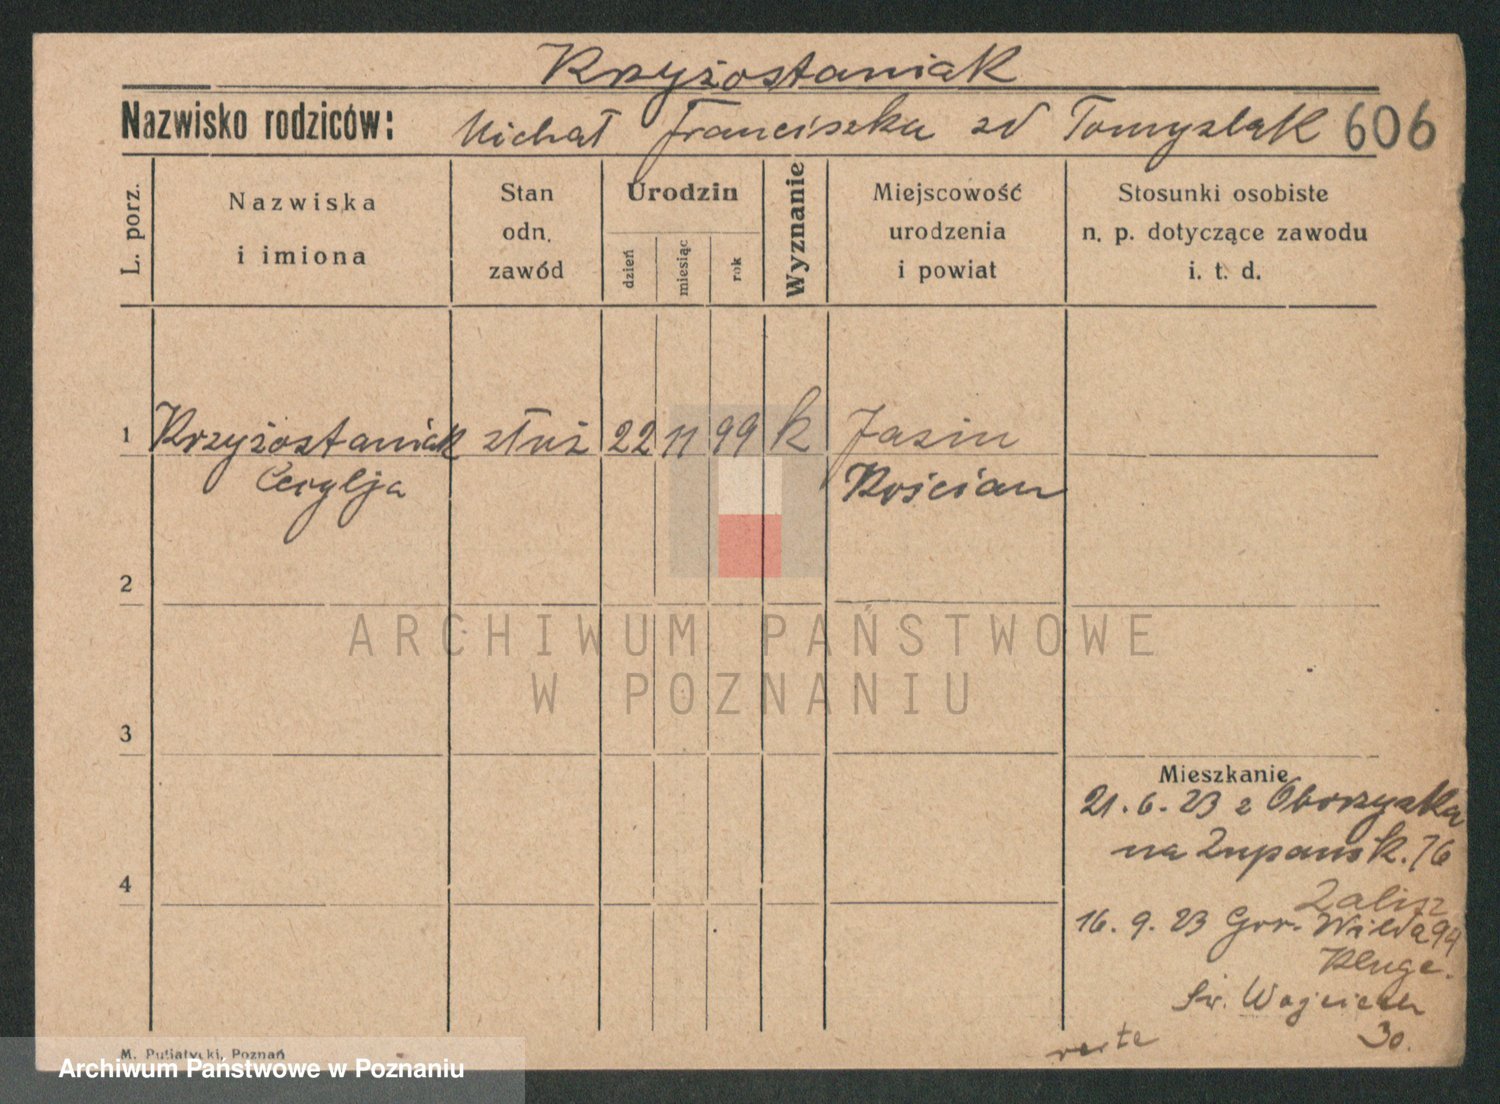 Krzyżostaniak
Nazwisko rodziców: Michał Franciszka zd Tomyslak 606
L. porz.
Nazwiska
i imiona
Stan
odn.
zawód
Urodzin
dzień
miesiąc
rok
Wyznanie
Miejscowość
urodzenia
i powiat
Stosunki osobiste
n. p. dotyczące zawodu
i. t. d.
1 Krzyżostaniak służ 22 11 99 k Jasin
Cecylja Kościan
2
ARCHIWUM PAŃSTWOWE
W POZNANIU
3
Mieszkanie
21. 6. 23 z Obrzyska
na Zupansk. 76
4
Zalisz
16. 9. 23 Gor. Wilda 99
Kluge.
Św. Wojciech
30.
verte
M. Putiatycki, Poznań
Archiwum Państwowe w Poznaniu